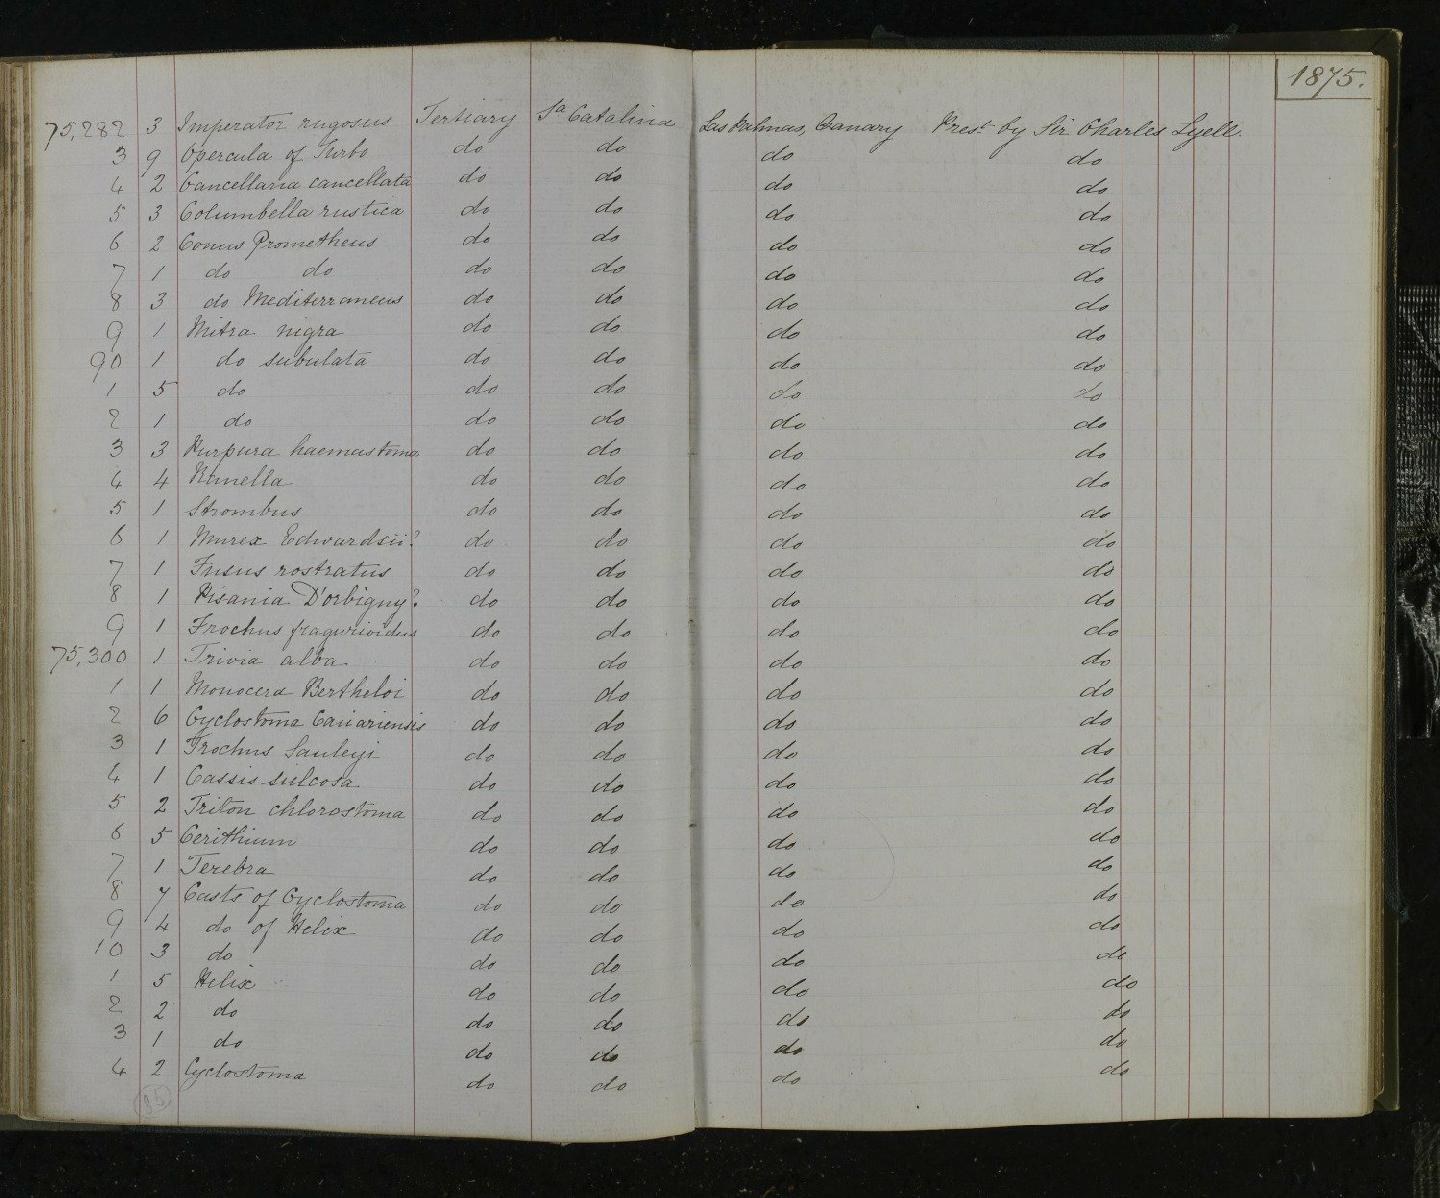 1875.
75,282 3 Imperator rugosus Tertiary Sa Catalina Las Palmas, Canary Prest by Sir Charles Lyell.
3 9 Opercula of Turbo do do do do
4 2 Cancellaria cancellata do do do do
5 3 Columbella rustica do do do do
6 2 Conus Prometheus do do do do
7 1 do do do do do do
8 3 do Mediterraneus do do do do
9 1 Mitra nigra do do do do
90 1 do subulata do do do do
1 5 do do do do do
2 1 do do do do do
3 3 Purpura haemastoma do do do do
4 4 Ranella do do do do
5 1 Strombus do do do do
6 1 Murex Edwardsii? do do do do
7 1 Fusus rostratus do do do do
8 1 Pisania D'orbigny? do do do do
9 1 Trochus do do do do
75,300 1 Trivia alba do do do do
1 1 Monocera Bertheloi do do do do
2 6 Cyclostoma Canariensis do do do do
3 1 Trochus Sauleyi do do do do
4 1 Cassis sulcosa do do do do
5 2 Triton chlorostoma do do do do
6 5 Cerithium do do do do
7 1 Terebra do do do do
8 7 Casts of Cyclostoma do do do do
9 4 do of Helix do do do do
10 3 do do do do do
1 5 Helix do do do do
2 2 do do do do do
3 1 do do do do do
4 2 Cyclostoma do do do do